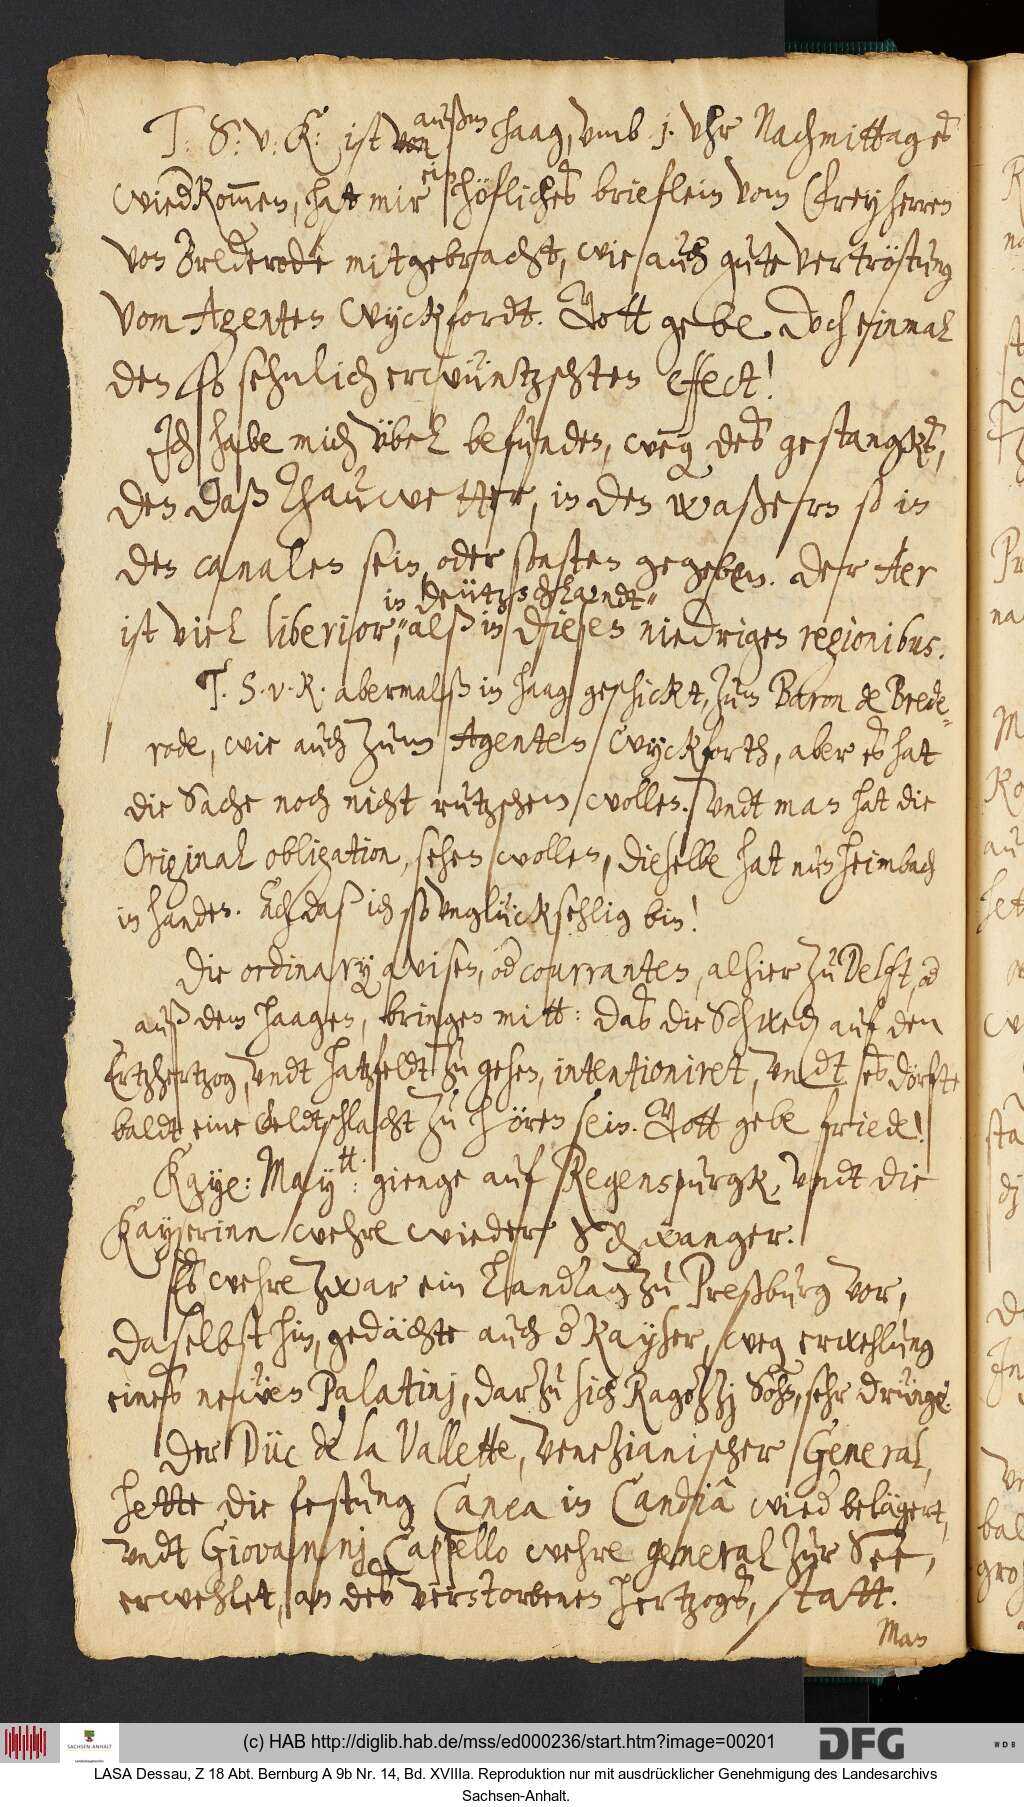 T: S: v: K: ist von außm Haag, vmb j. vhr Nachmittages
wiedkommen, hat mir ein höfliches brieflein vom Freyherren
von Brederode mitgebracht, wie auch gute vertröstung
vom Agenten Wyckfordt. Gott gebe doch einmal
den so sehnlich erwüntzschten effect!
Jch habe mich übel befunden, weg des gestangks,
den daß Thauwetter, in den waßern so in
den canalen sein, oder sonsten gegeben. der Aer
ist viel liberior, in Deützschlandt als in diesen niedrigen regionibus.
T. S. v. K. abermalß in Haag geschickt, zum Baron de Brede-
rode, wie auch zum Agenten Wyckforth, aber es hat
die Sache noch nicht rutzschen wollen. Vndt man hat die
Original obligation, sehen wollen, dieselbe hat nun Heimbach
in handen. Ach daß ich so vnglücksehlig bin!
Die ordinary avisen, od courranten, alhier zu Delft, od
auß dem Haagen, bringen mitt: das die Schwed auf den
Ertzhertzog, vndt Hatzfeldt zu gehen, intentioniret, vndt es dörfte
baldt eine Veldtschlacht zu hören sein. Gott gebe friede!
Kaye: May:tt: gienge auf Regenspurgk, vndt die
Kayserinn wehre wieder schwanger.
Es wehre zwar ein Landtag zu Preßburg vor,
daselbst hin, gedächte auch d Kayser, weg erwehlung
eines neuen Palatinj, darzu sich Ragozzj Sohn, sehr drünge.
Der Düc de la Vallette, Venezianischer General,
hette die festung Canea in Candia wied belägert,
vndt Giovanninj Cappello wehre general zur See,
erwehlet, an des verstorbenen Hertzogs, statt.
Man
(c) HAB http://diglib.hab.de/mss/ed000236/start.htm?image=00201
SACHSEN-ANHALT
DFG
WDB
LASA Dessau, Z 18 Abt. Bernburg A 9b Nr. 14, Bd. XVIIIa. Reproduktion nur mit ausdrücklicher Genehmigung des Landesarchivs
Sachsen-Anhalt.